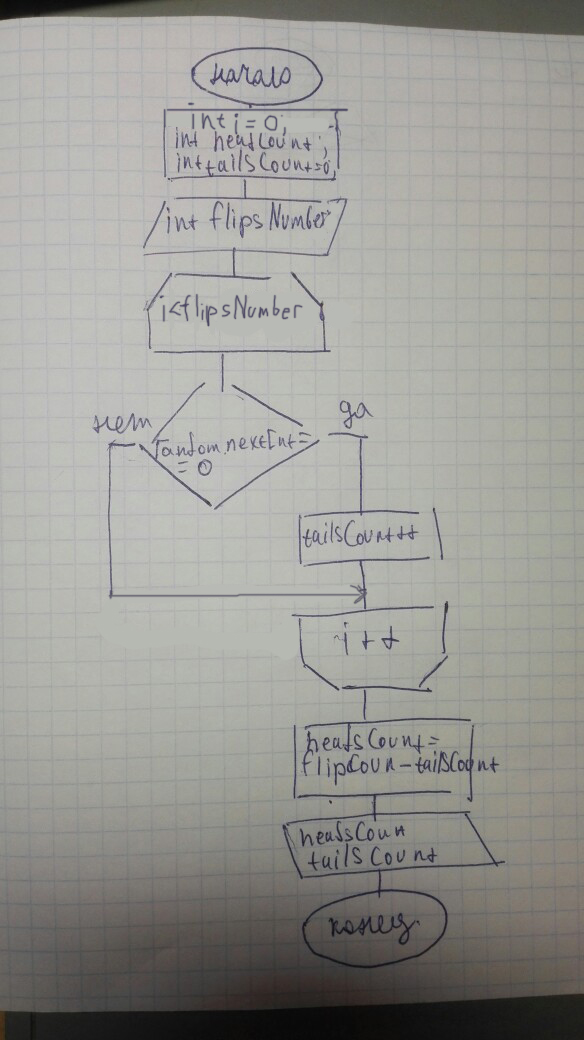 начало
int i = 0;
int headCount;
int tailsCount=0;
int flipsNumber
i<flipsNumber
нет
да
random.nextInt=
= 0
tailsCount++
i++
headsCount=
flipCoun-tailsCount
headsCoun
tailsCount
конец